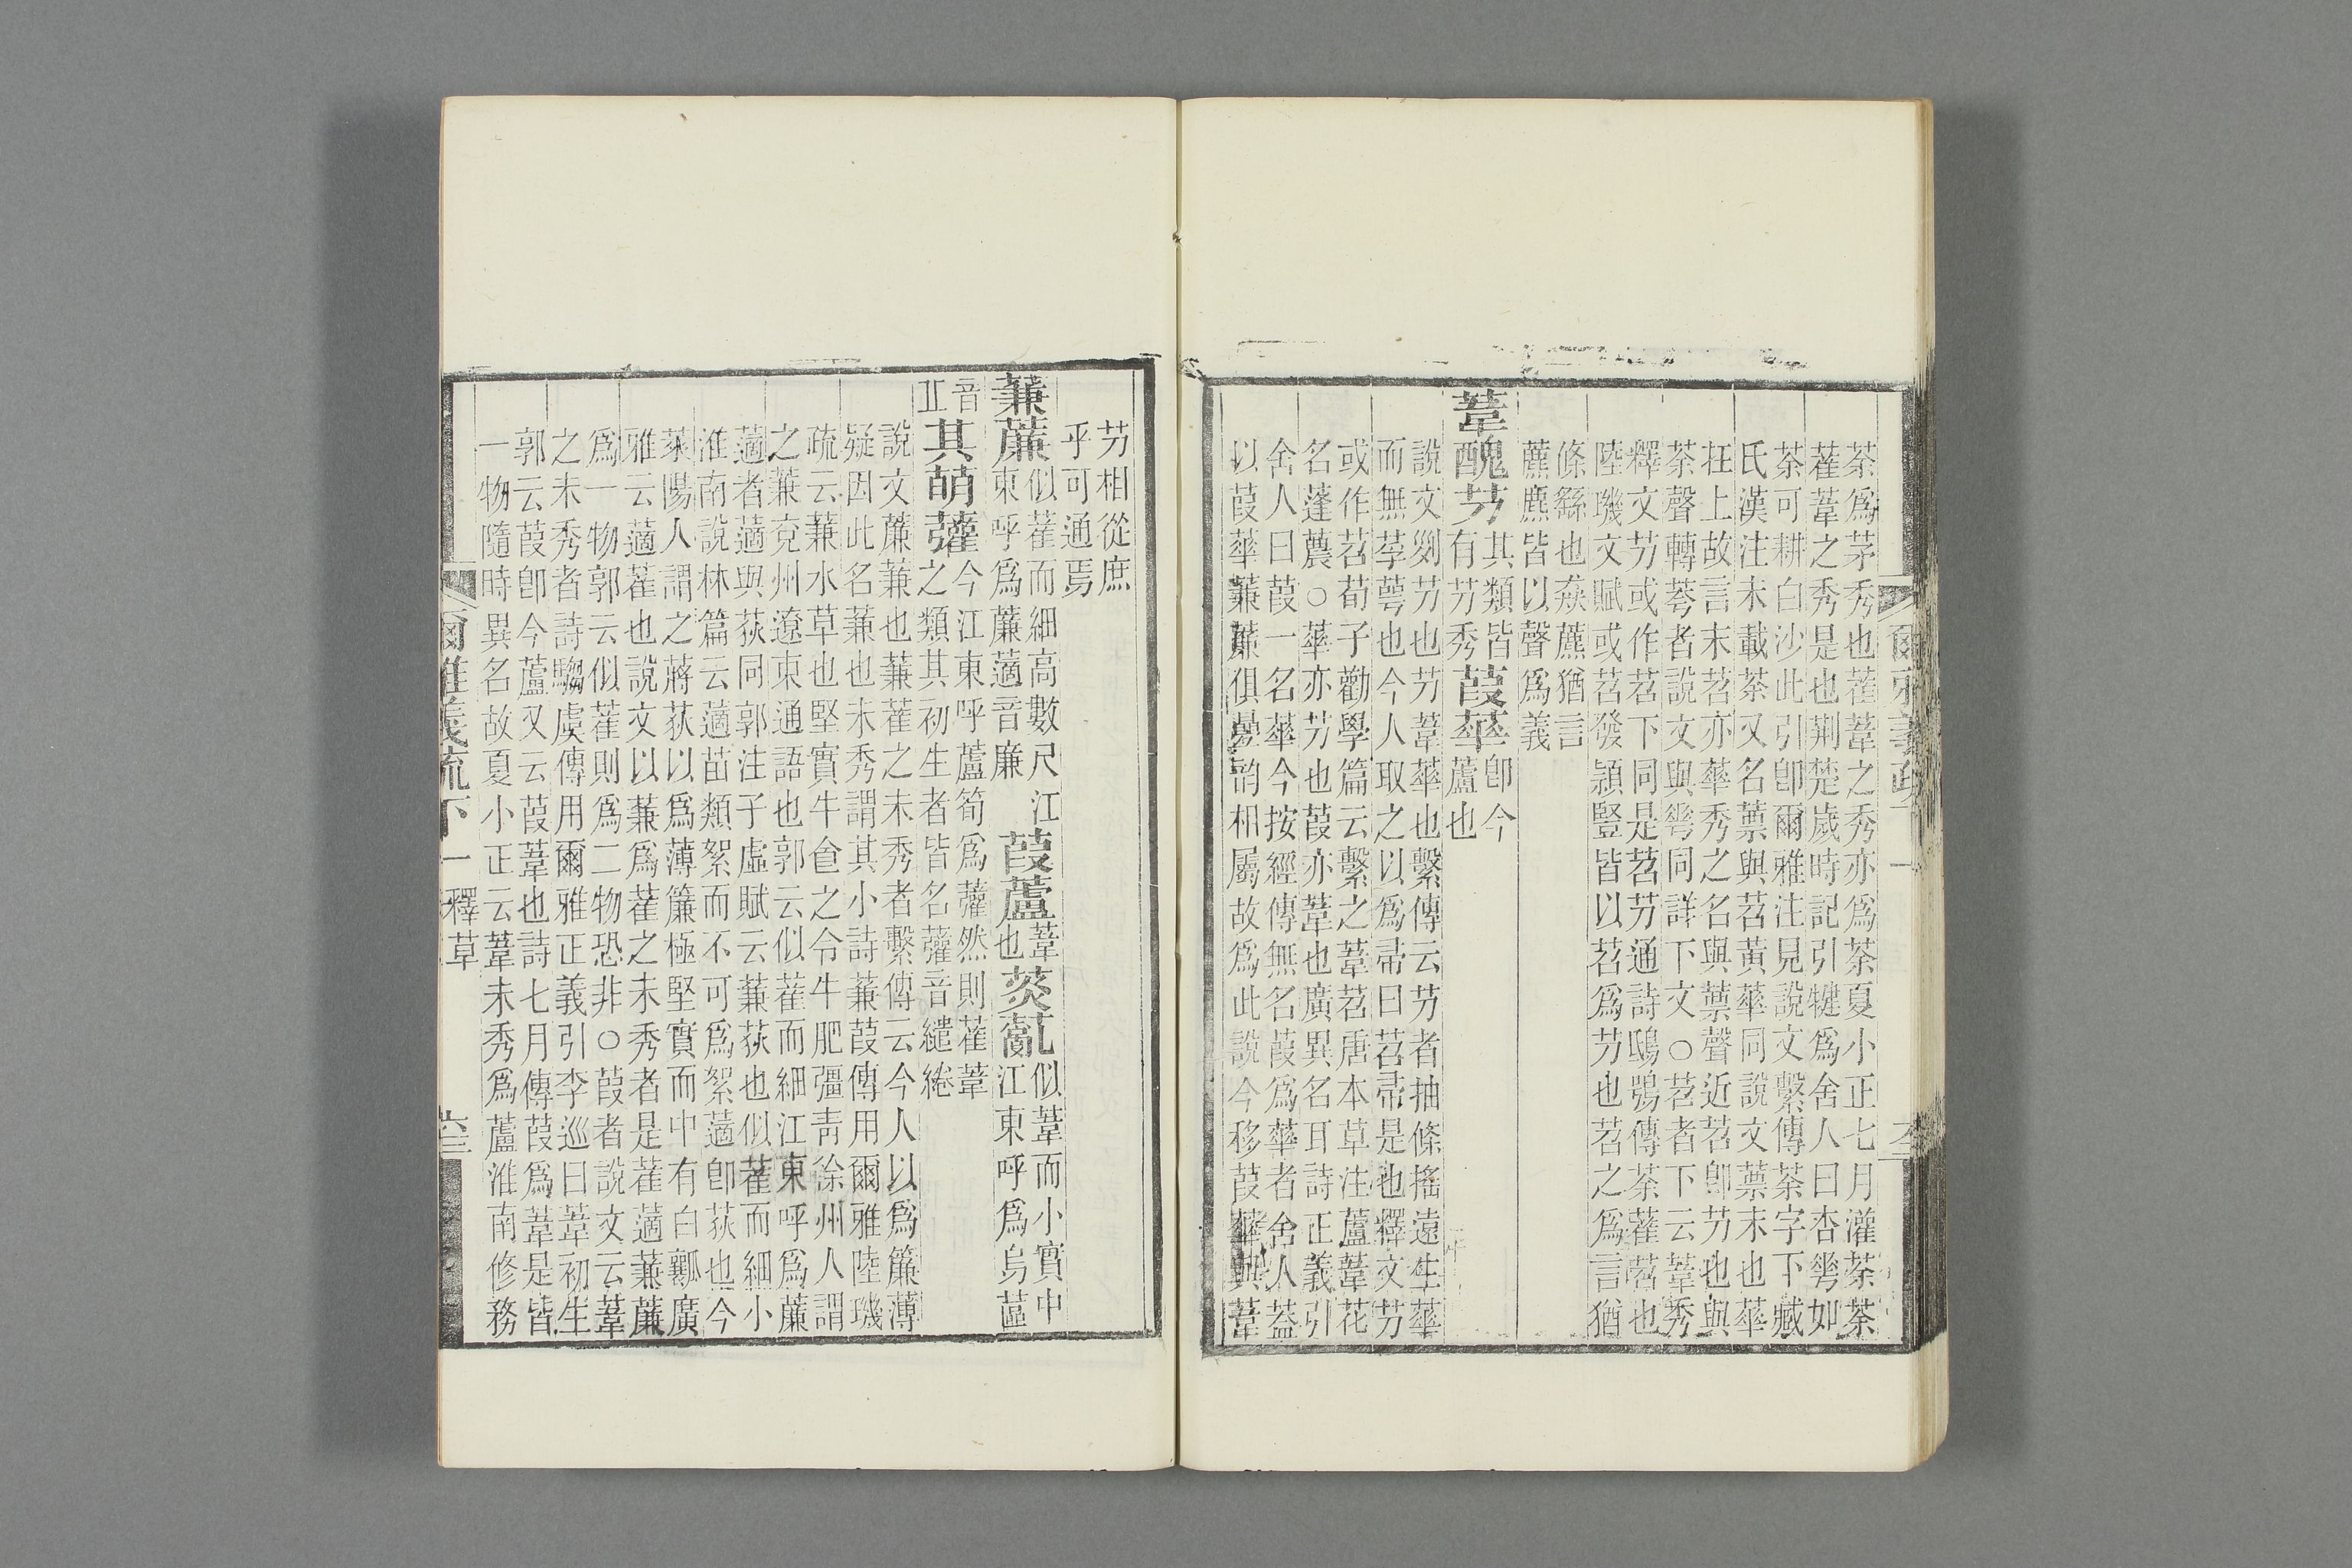 荼爲茅秀也萑葦之秀亦爲荼夏小正七月灌荼荼
萑葦之秀是也荆楚歲時記引犍爲舍人曰杏華如
荼可耕白沙此引卽爾雅注見說文繫傳荼字下臧
氏漢注未載荼又名蔈與苕黃華同說文蔈末也華
抂上故言末苕亦華秀之名與蔈聲近苕卽艻也與
荼聲轉蒤者說文與䔢同詳下文○苕者下云葦秀
釋文艻或作苕下同是苕艻通詩鴟鴞傳荼萑苕也
陸璣文賦或苕發潁豎皆以苕爲艻也苕之爲言猶
條繇也猋藨猶言
藨麃皆以聲爲義
葦醜艻其類皆
有艻秀葭華卽今
蘆也
說文𦯔艻也艻葦華也繫傳云艻者抽條搖遠生華
而無莩萼也今人取之以爲帚曰苕帚是也釋文艻
或作苕荀子勸學篇云繫之葦苕唐本草注蘆葦花
名蓬蕽○華亦艻也葭亦葦也廣異名耳詩正義引
舍人曰葭一名華今按經傳無名葭爲華者舍人蓋
以葭華蒹薕俱㬪韵相屬故爲此說今移葭華與葦
艻相從庶
乎可通焉
蒹薕似萑而細高數尺江
東呼爲薕薖音廉葭蘆葦
也菼薍似葦而小實中
江東呼爲烏蓲
音
丘其萌虇今江東呼蘆筍爲虇然則萑葦
之類其初生者皆名虇音繾綣
說文薕蒹也蒹萑之未秀者繫傳云今人以爲簾薄
疑因此名蒹也未秀謂其小詩蒹葭傳用爾雅陸璣
疏云蒹水草也堅實牛食之令牛肥彊靑徐州人謂
之蒹兗州遼東通語也郭云似萑而細江東呼爲薕
藡者藡與荻同郭注子虛賦云蒹荻也似萑而細小
淮南說林篇云藡苗類絮而不可爲絮藡卽荻也今
萊陽人謂之蔣荻以爲薄簾極堅實而中有白瓤廣
雅云藡萑也說文以蒹爲萑之未秀者是萑藡蒹薕
爲一物郭云似萑則爲二物恐非○葭者說文云葦
之未秀者詩騶虞傳用爾雅正義引李巡曰葦初生
郭云葭卽今蘆又云葭葦也詩七月傳葭爲葦是皆
一物隨時異名故夏小正云葦未秀爲蘆淮南修務
爾雅義疏下一釋草 六三